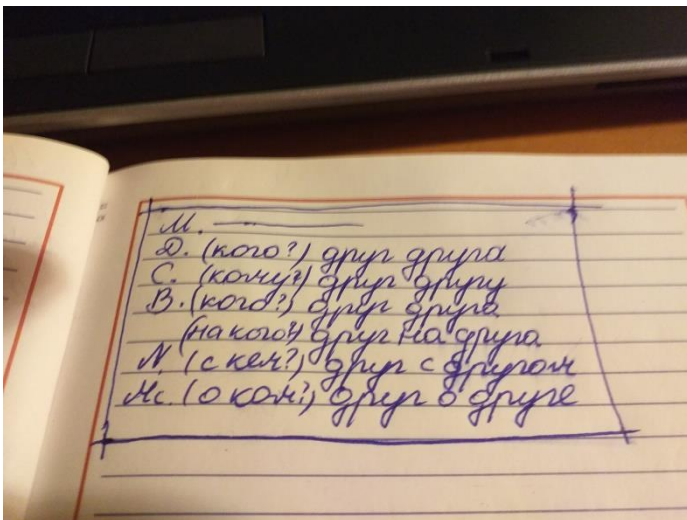 М. ———
D. (кого?) друг друга
C. (кому?) друг другу
B. (кого?) друг друга
(на кого?) друг на друга
N. (с кем?) друг с другом
Mc. (о ком?) друг о друге